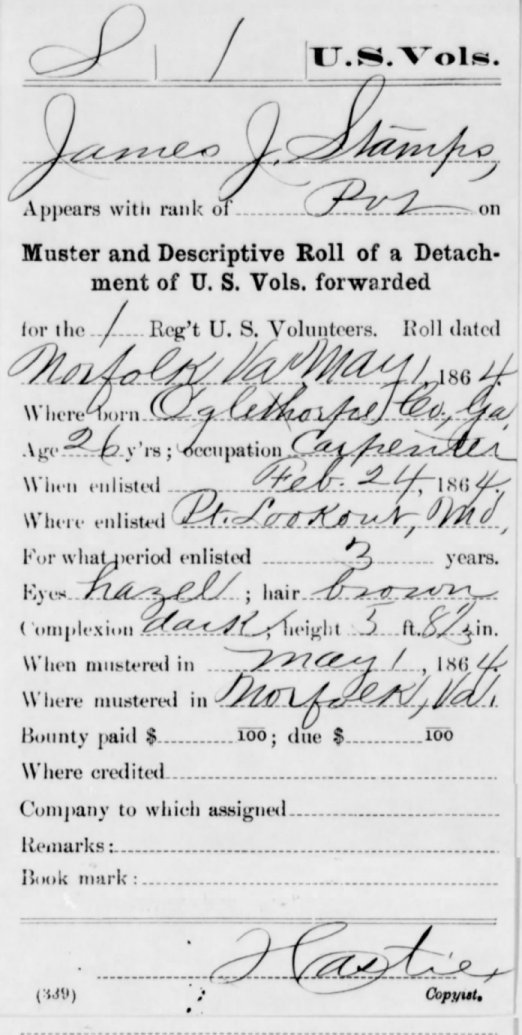 S | 1 | U.S. Vols.
James J. Stamps,
Appears with rank of Pvt on
Muster and Descriptive Roll of a Detach-
ment of U. S. Vols. forwarded
for the 1 Reg't U. S. Volunteers. Roll dated
Norfolk Va. May 1, 1864.
Where born Oglethorpe, Co., Ga
Age 26 y'rs; occupation Carpenter
When enlisted Feb. 24, 1864.
Where enlisted Pt. Lookout, Md,
For what period enlisted 3 years.
Eyes hazel; hair brown
Complexion dark; height 5 ft. 8½ in.
When mustered in May 1, 1864.
Where mustered in Norfolk, Va.
Bounty paid $ 100; due $ 100
Where credited
Company to which assigned
Remarks:
Book mark:
Hastie
(339) Copyist.